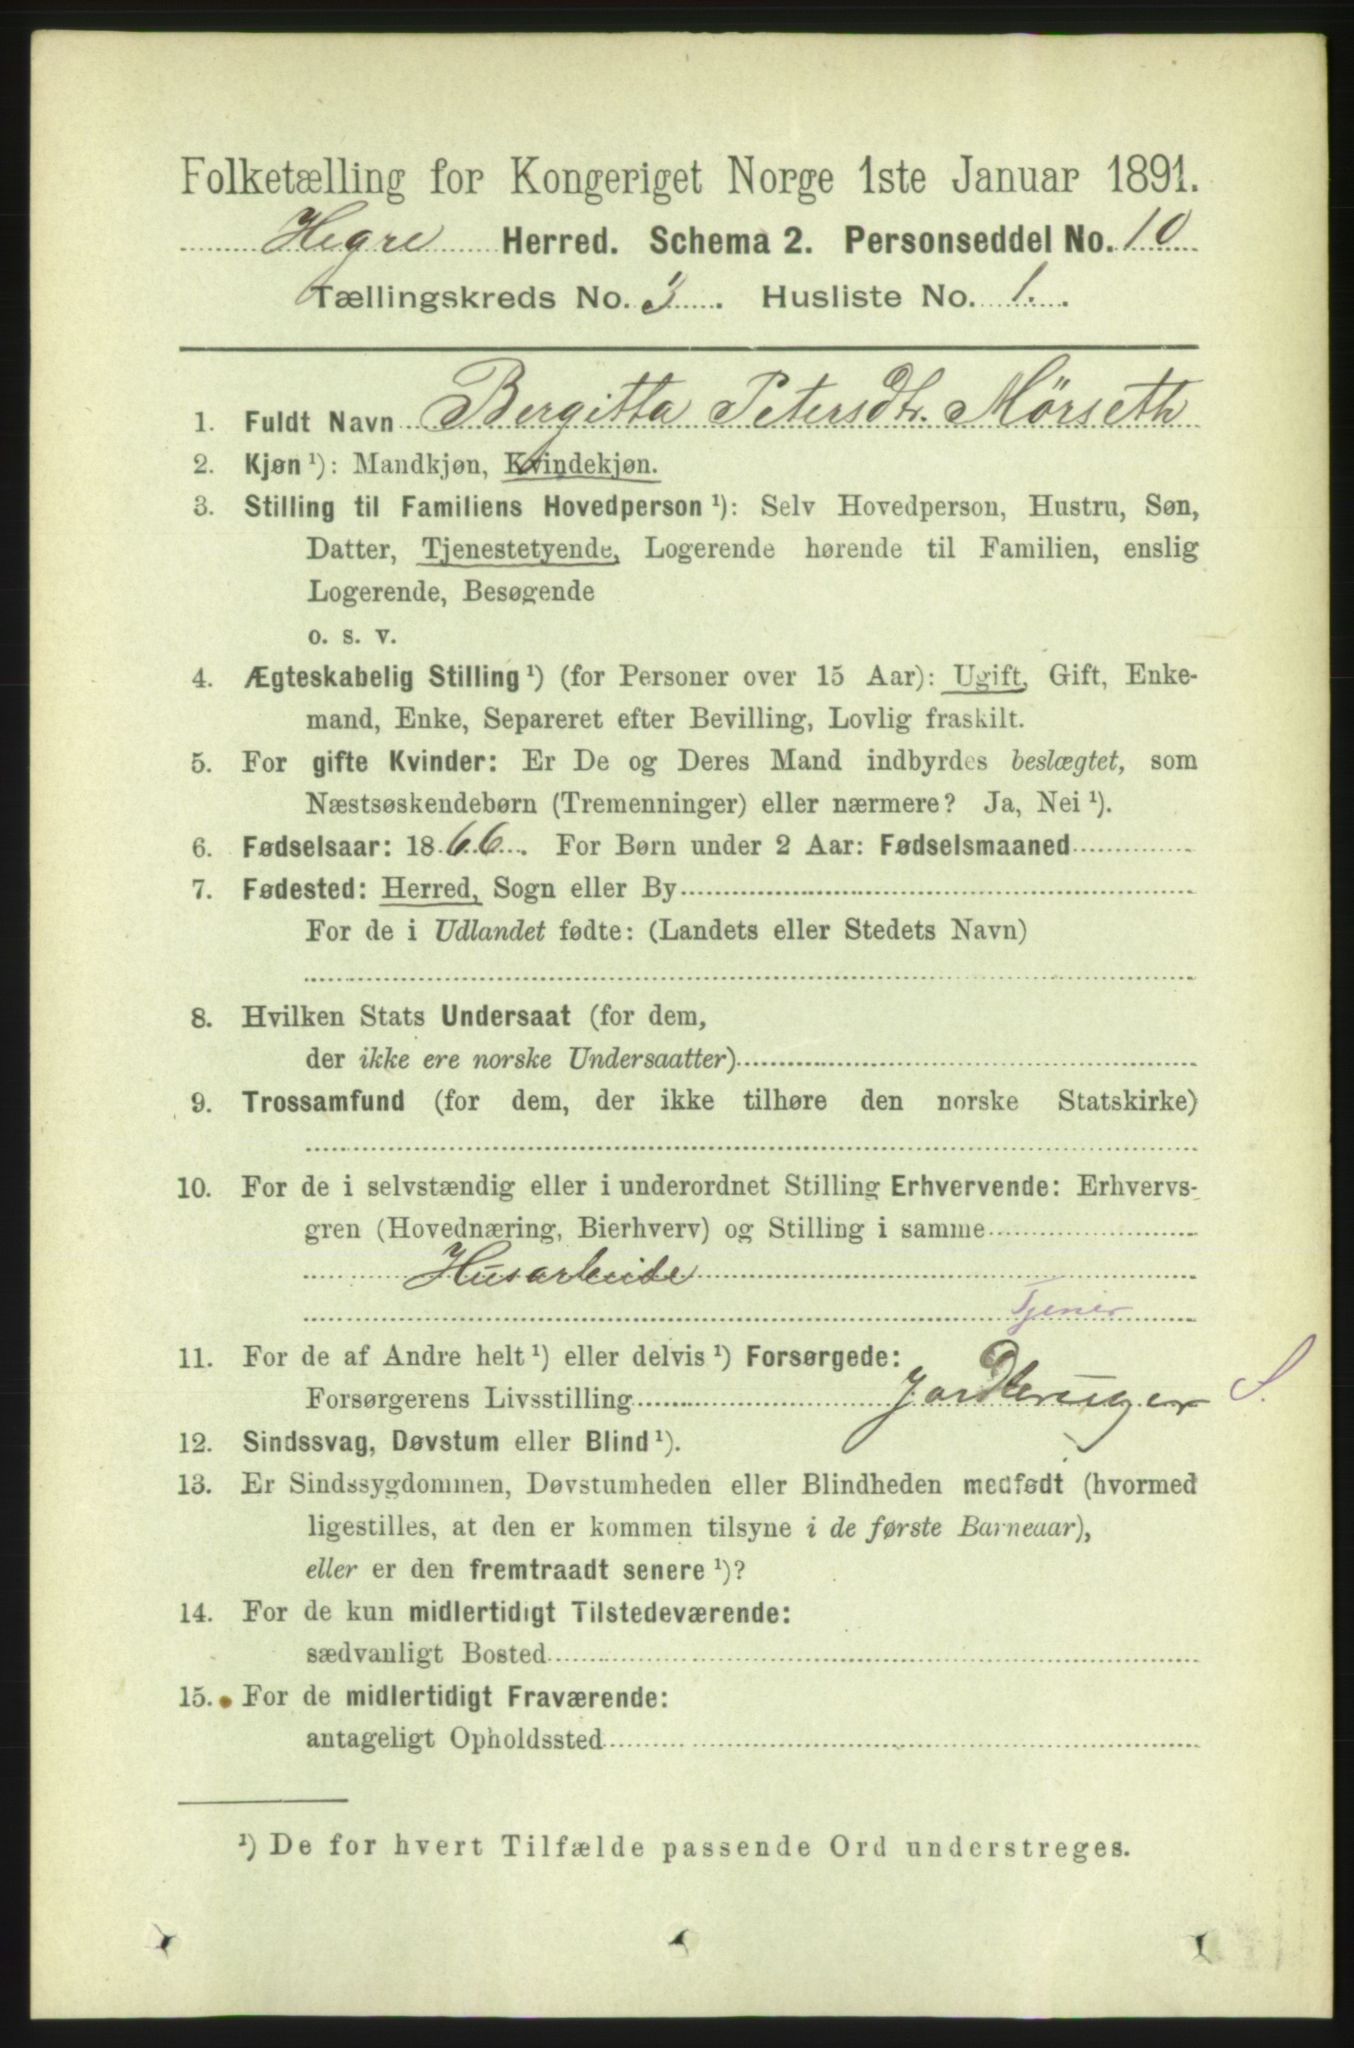 Folketælling for Kongeriget Norge 1ste Januar 1891.
Hegre Herred. Schema 2. Personseddel No. 10
Tællingskreds No. 3. Husliste No. 1.
1. Fuldt Navn Bergitta Petersdtr. Mörseth
2. Kjøn ¹): Mandkjøn, Kvindekjøn.
3. Stilling til Familiens Hovedperson ¹): Selv Hovedperson, Hustru, Søn,
Datter, Tjenestetyende, Logerende hørende til Familien, enslig
Logerende, Besøgende
o. s. v.
4. Ægteskabelig Stilling ¹) (for Personer over 15 Aar): Ugift, Gift, Enke-
mand, Enke, Separeret efter Bevilling, Lovlig fraskilt.
5. For gifte Kvinder: Er De og Deres Mand indbyrdes beslægtet, som
Næstsøskendebørn (Tremenninger) eller nærmere? Ja, Nei ¹).
6. Fødselsaar: 1866. For Børn under 2 Aar: Fødselsmaaned
7. Fødested: Herred, Sogn eller By
For de i Udlandet fødte: (Landets eller Stedets Navn)
8. Hvilken Stats Undersaat (for dem,
der ikke ere norske Undersaatter)
9. Trossamfund (for dem, der ikke tilhøre den norske Statskirke)
10. For de i selvstændig eller i underordnet Stilling Erhvervende: Erhvervs-
gren (Hovednæring, Bierhverv) og Stilling i samme
Husarbeide
Tjener
11. For de af Andre helt ¹) eller delvis ¹) Forsørgede:
Forsørgerens Livsstilling Jordbruger S.
12. Sindssvag, Døvstum eller Blind ¹).
13. Er Sindssygdommen, Døvstumheden eller Blindheden medfødt (hvormed
ligestilles, at den er kommen tilsyne i de første Barneaar),
eller er den fremtraadt senere ¹)?
14. For de kun midlertidigt Tilstedeværende:
sædvanligt Bosted
15. For de midlertidigt Fraværende:
antageligt Opholdssted
¹) De for hvert Tilfælde passende Ord understreges.